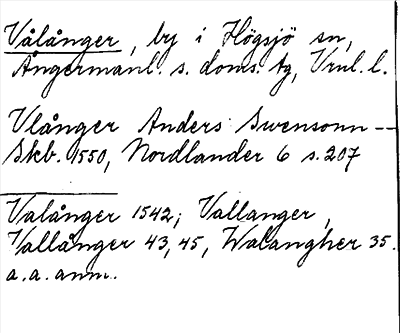 Vålånger, by i Högsjö sn,
Ångermanl. s. doms. tg, Vrnl. l.
Vlånger Anders Swensonn —
Skb. 1550, Nordlander 6 s. 207
Valånger 1542; Vallanger,
Vallånger 43, 45, Walangher 35.
a. a. anm.